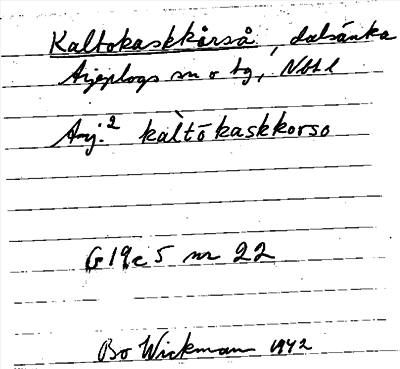 Kaltokaskkårså, dalsänka
Arjeplogs sn o tg, Nbtl
Arj.² kàltōkaskkorso
G19c5 nr 22
Bo Wickman 1942